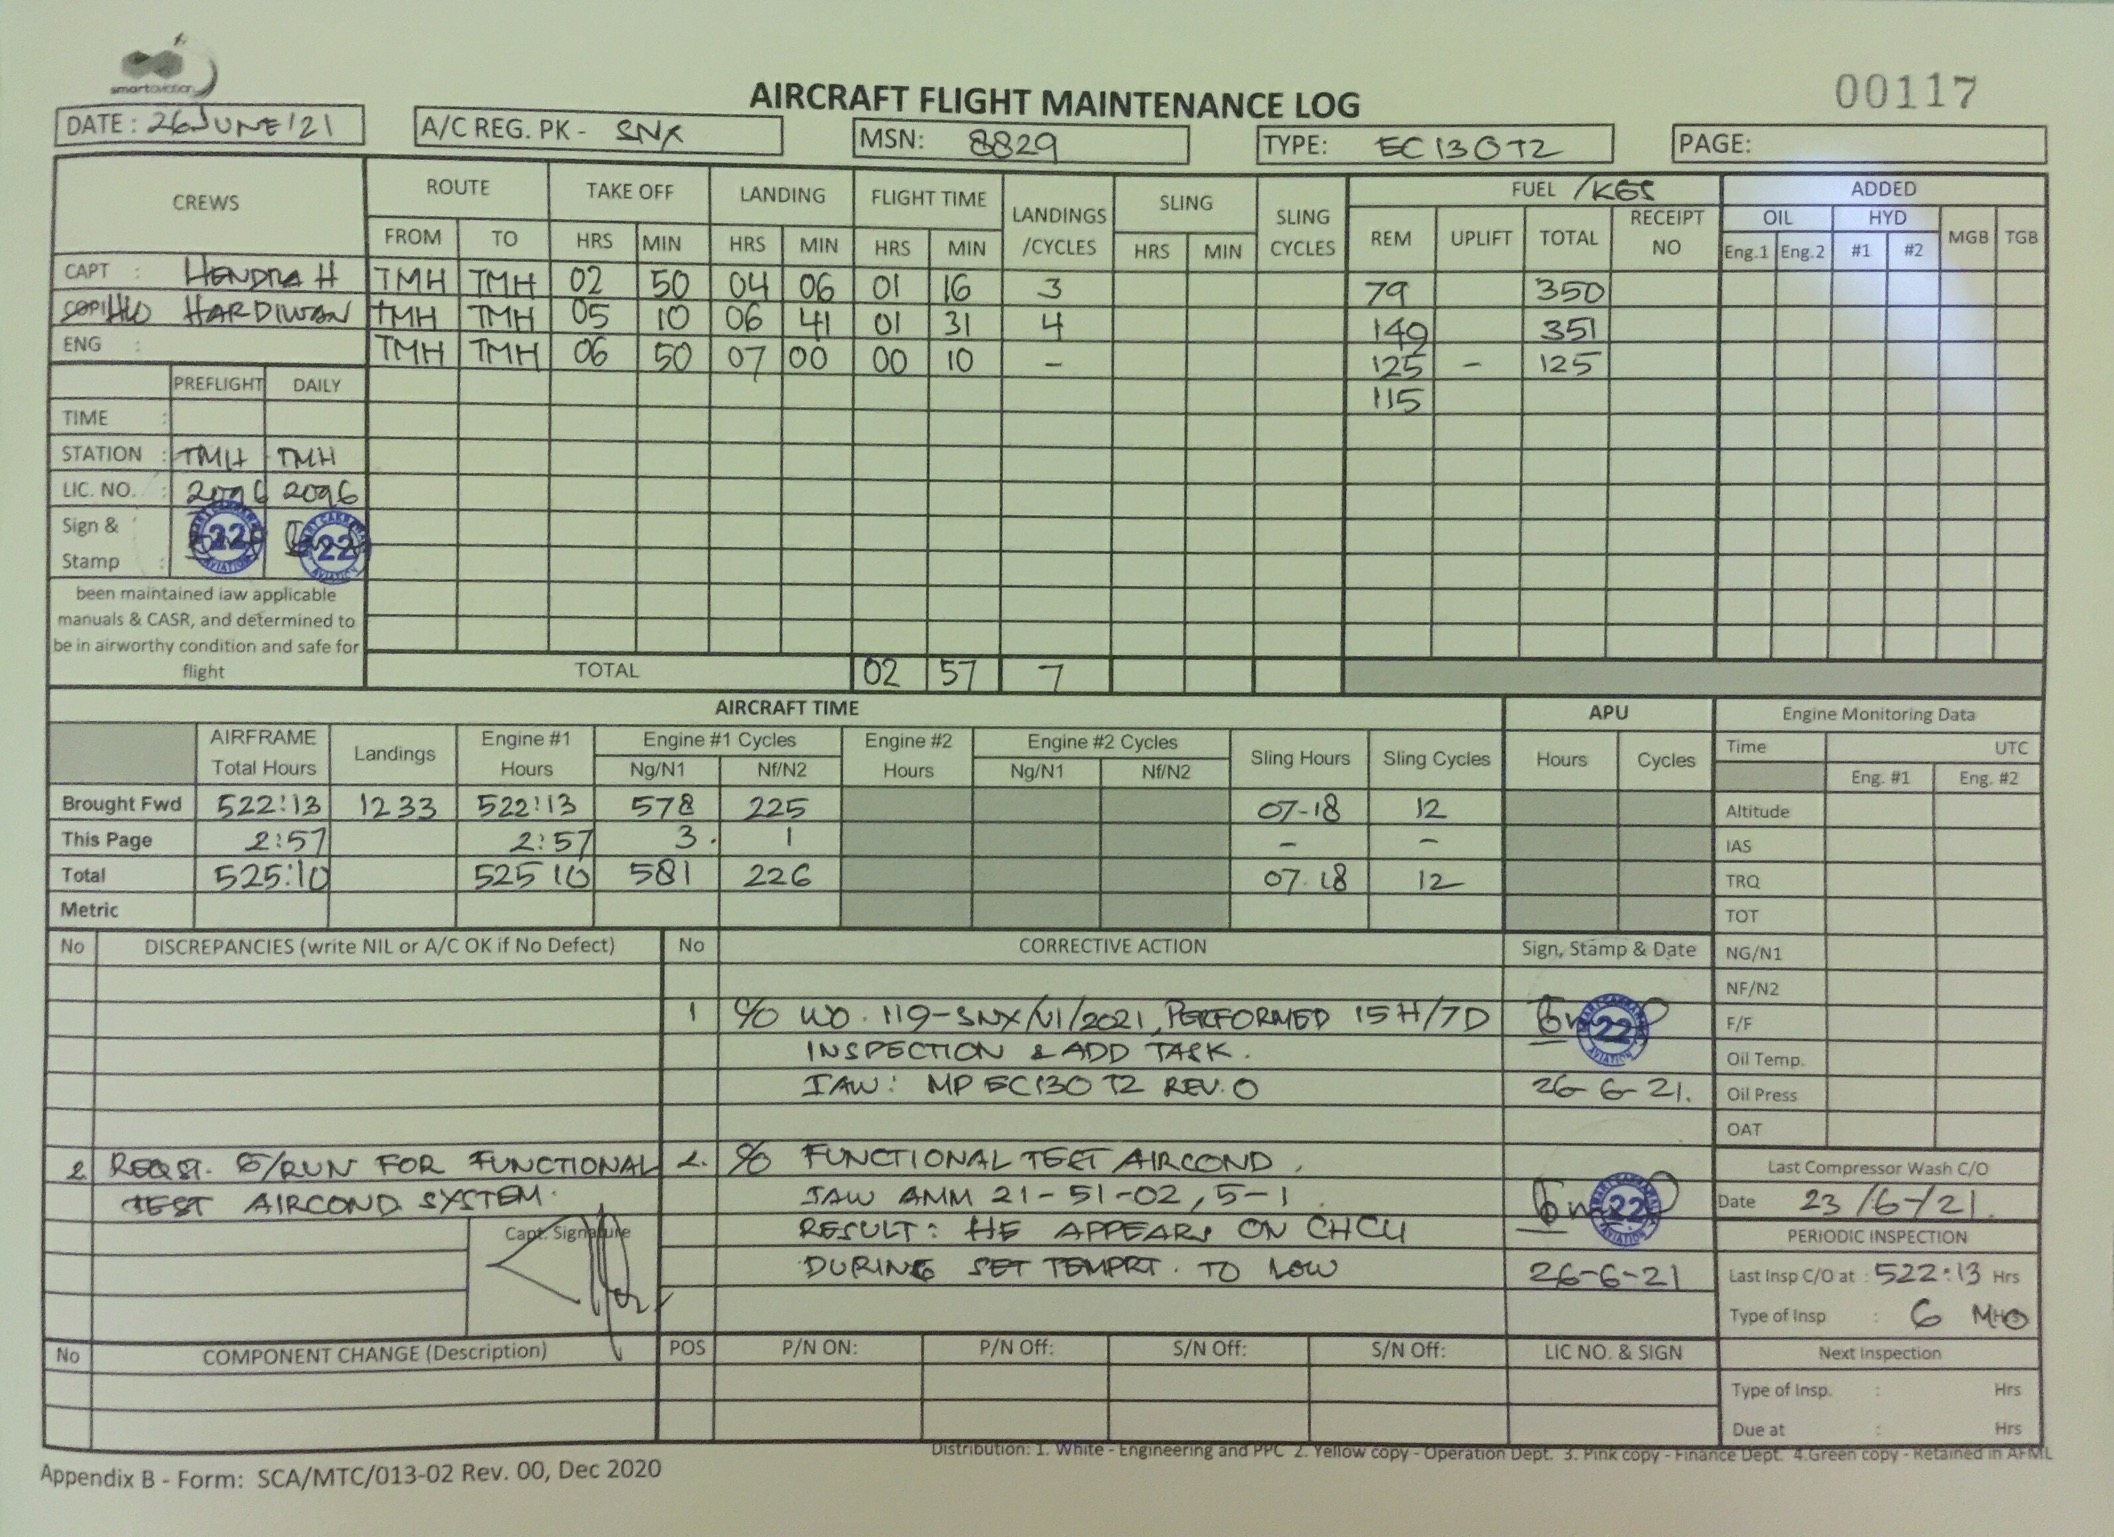 smartaviation
AIRCRAFT FLIGHT MAINTENANCE LOG
00117
DATE : 26 JUNE '21
A/C REG. PK - SNX
MSN: 8829
TYPE: EC130T2
PAGE:
CREWS ROUTE TAKE OFF LANDING FLIGHT TIME LANDINGS /CYCLES SLING SLING CYCLES FUEL /KGS ADDED
FROM TO HRS MIN HRS MIN HRS MIN HRS MIN REM UPLIFT TOTAL RECEIPT NO OIL HYD MGB TGB
Eng.1 Eng.2 #1 #2
CAPT : HENDRA H TMH TMH 02 50 04 06 01 16 3 79 350
HARDIWAN TMH TMH 05 10 06 41 01 31 4 149 351
ENG : TMH TMH 06 50 07 00 00 10 - 125 - 125
PREFLIGHT DAILY 115
TIME :
STATION : TMH TMH
LIC. NO. : 2096 2096
Sign & Stamp : 22 22
AVIATION AVIATION
been maintained iaw applicable
manuals & CASR, and determined to
be in airworthy condition and safe for
flight
TOTAL 02 57 7
AIRCRAFT TIME APU Engine Monitoring Data
AIRFRAME Total Hours Landings Engine #1 Hours Engine #1 Cycles Engine #2 Hours Engine #2 Cycles Sling Hours Sling Cycles Hours Cycles Time UTC
Ng/N1 Nf/N2 Ng/N1 Nf/N2 Eng. #1 Eng. #2
Brought Fwd 522:13 1233 522:13 578 225 07-18 12 Altitude
This Page 2:57 2:57 3. 1 - - IAS
Total 525:10 525 10 581 226 07.18 12 TRQ
Metric TOT
No DISCREPANCIES (write NIL or A/C OK if No Defect) No CORRECTIVE ACTION Sign, Stamp & Date NG/N1
NF/N2
1 C/O WO. 119-SNX/VI/2021, PERFORMED 15H/7D 22 F/F
INSPECTION & ADD TASK. AVIATION Oil Temp.
IAW: MP EC130 T2 REV. 0 26-6-21. Oil Press
OAT
2 REQST. E/RUN FOR FUNCTIONAL 2. C/O FUNCTIONAL TEST AIRCOND, Last Compressor Wash C/O
TEST AIRCOND SYSTEM. IAW AMM 21-51-02, 5-1. 22 Date 23/6/21.
Capt. Signature RESULT: HE APPEARS ON CHCU AVIATION PERIODIC INSPECTION
DURING SET TEMPRT. TO LOW 26-6-21 Last Insp C/O at : 522:13 Hrs
Type of Insp : 6
No COMPONENT CHANGE (Description) POS P/N ON: P/N Off: S/N Off: S/N Off: LIC NO. & SIGN Next Inspection
Type of Insp. : Hrs
Due at : Hrs
Distribution: 1. White - Engineering and PPC 2. Yellow copy - Operation Dept. 3. Pink copy - Finance Dept. 4.Green copy - Retained in AFML
Appendix B - Form: SCA/MTC/013-02 Rev. 00, Dec 2020